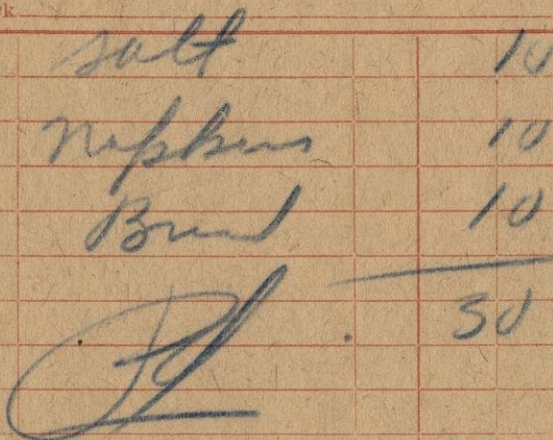 k
salt 10
Napkins 10
Bread 10
30
Pd